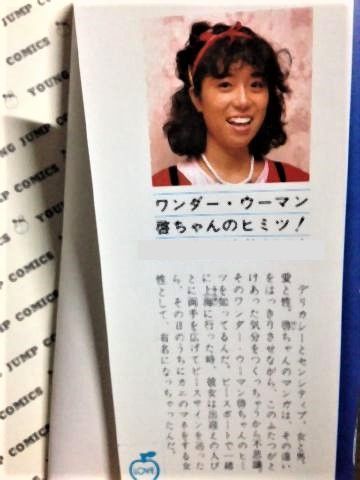 YOUNG JUMP COMICS
ワンダー・ウーマン
啓ちゃんのヒミツ!
デリカシーとセンシティブ、女と男、
愛と性。啓ちゃんのマンガは、その違い
をはっきりさせながら、このふたつがと
けあった気分をつくっちゃうから不思議。
そのワンダー・ウーマン啓ちゃんのヒミ
ツを知ってるんだ。ピースボートで一緒
に上海に行った時、彼女は出迎えの人び
とに両手を広げてピースサインを送った
ら、その日のうちにカニのマネをする女
性として、有名になっちゃったんだ。
LOVE